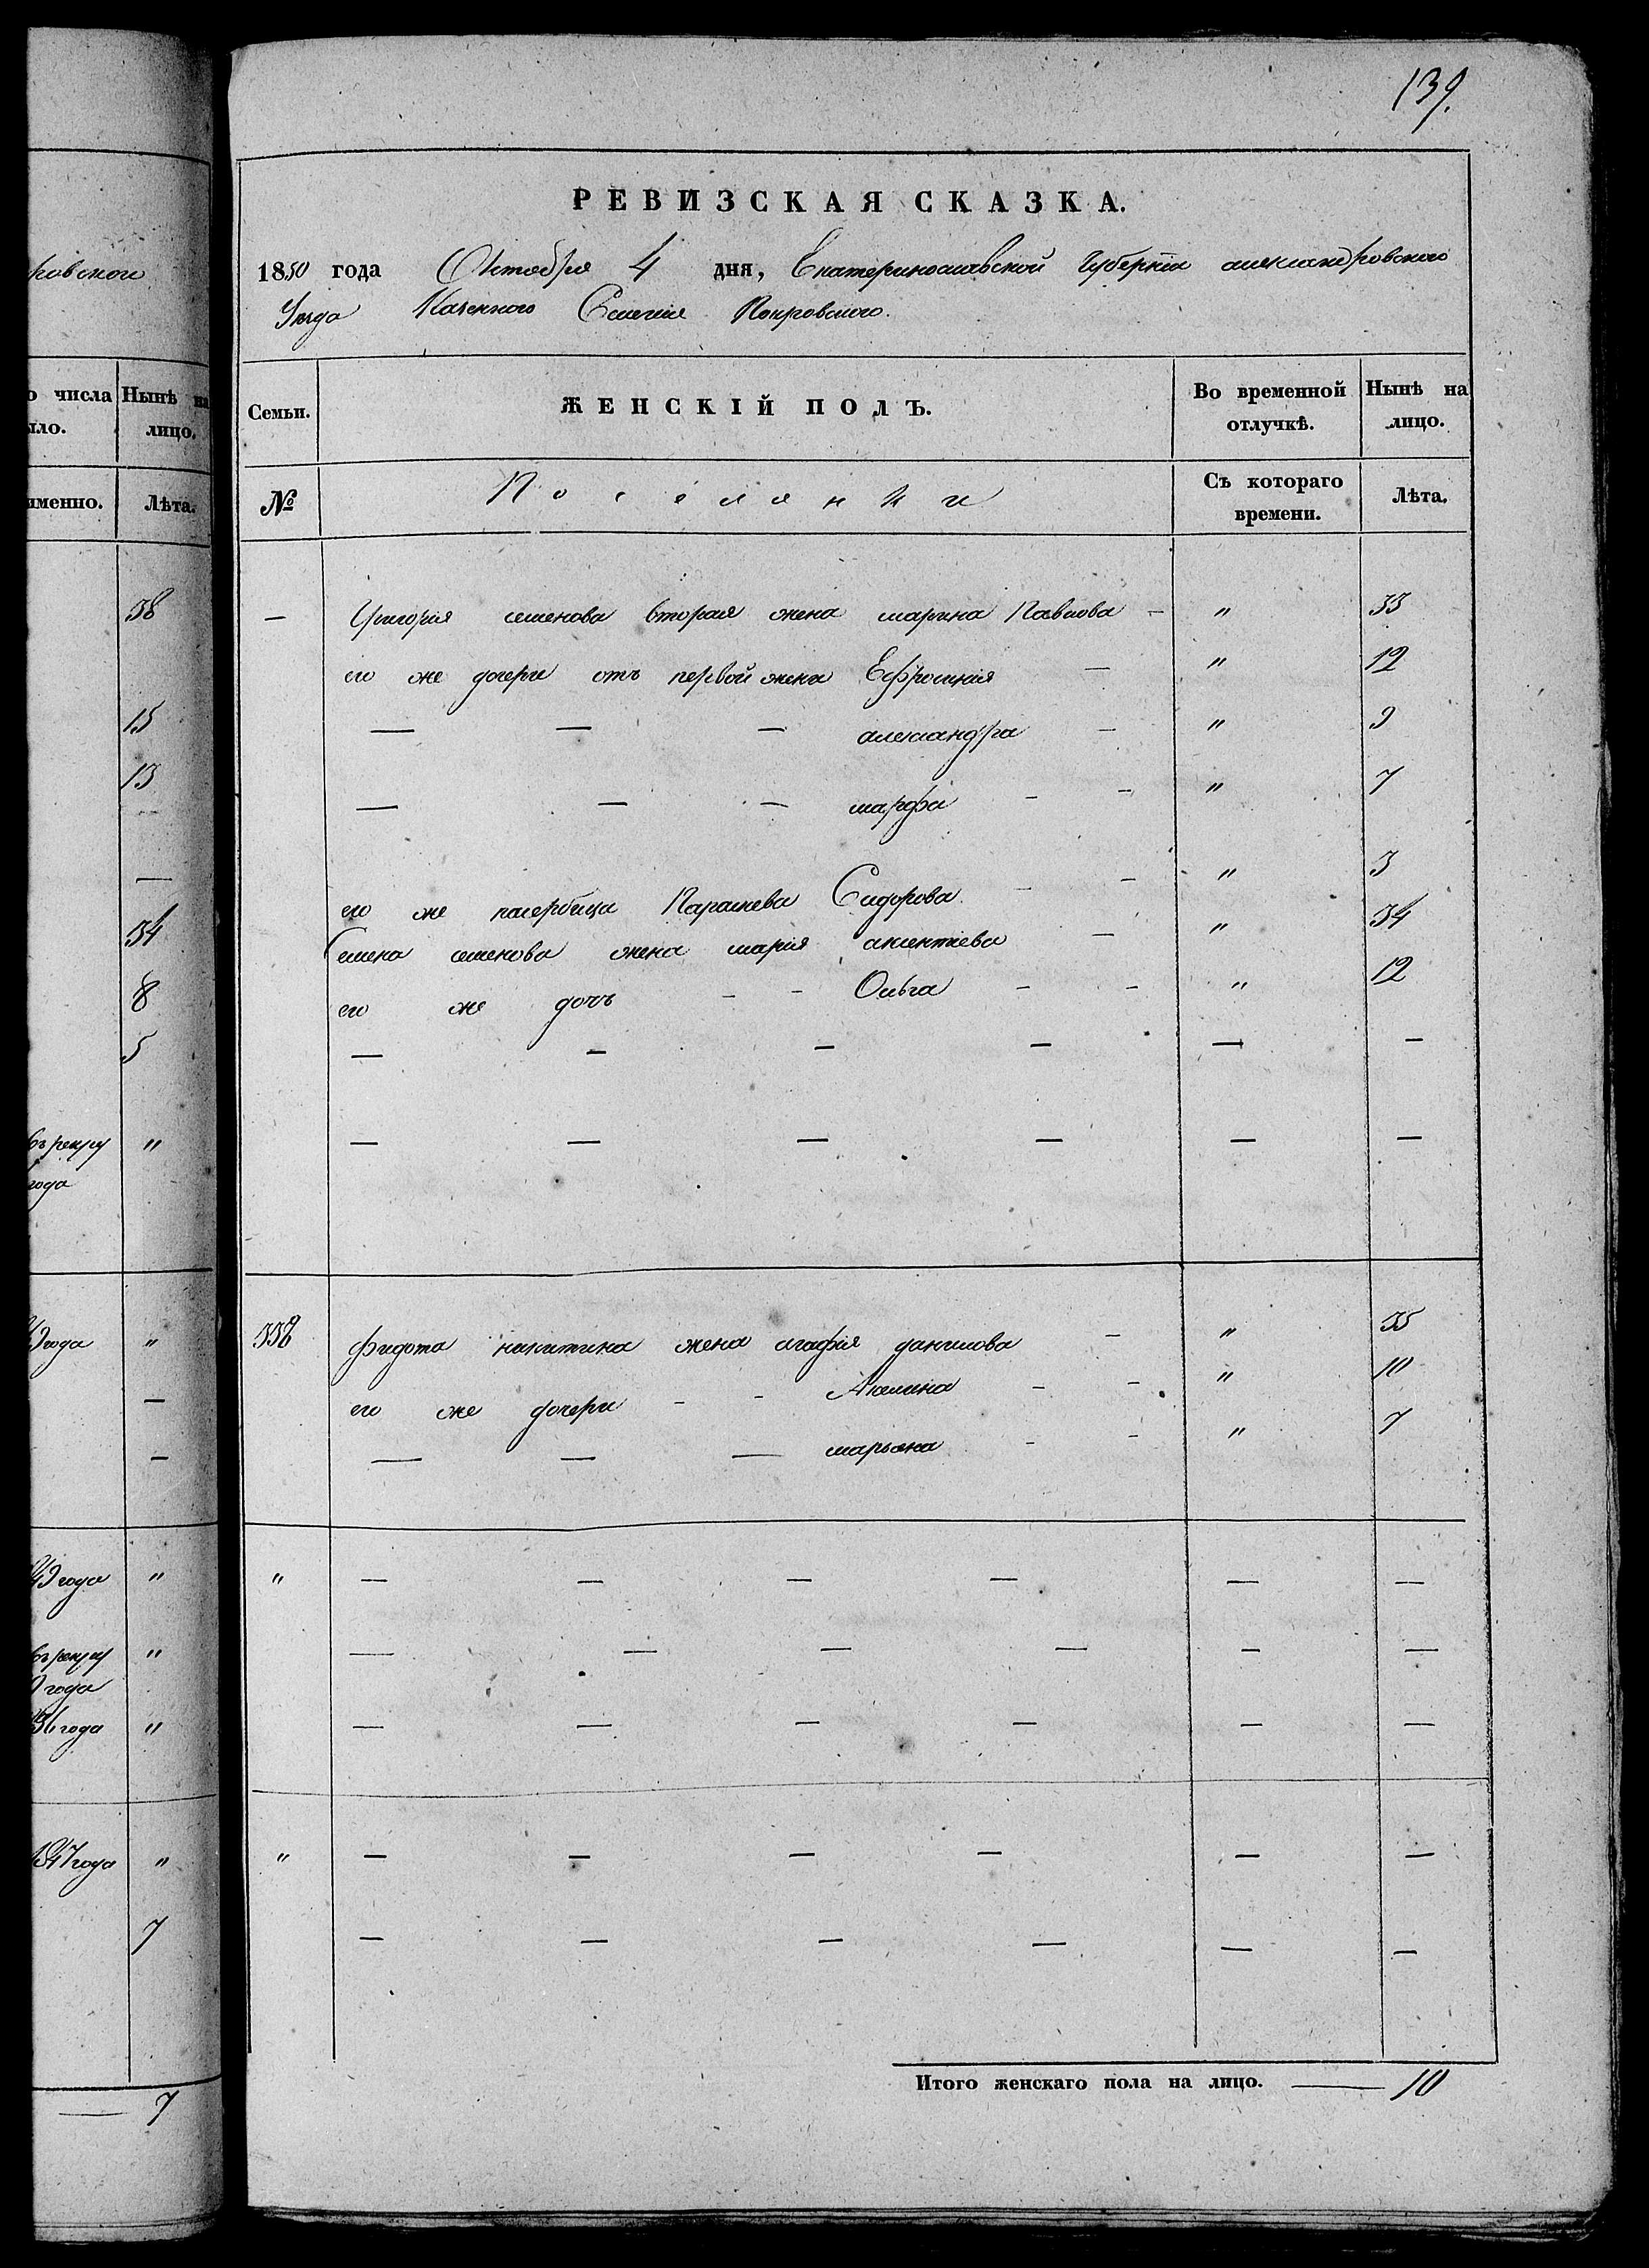 139.
РЕВИЗСКАЯ СКАЗКА.
1850 года Октября 4 дня, Екатеринославской Губернiи александровского
Уезда Казенного Селенiя Покровского.
Семьи. ЖЕНСКІЙ ПОЛЪ. Во временной отлучкѣ. Нынѣ на лицо.
№ Поселянки Съ котораго времени. Лѣта.
— Григорiя семенова вторая жена марина Павлова — " 33
его же дочери отъ первой жены Ефросинiя — " 12
— — — александра — " 9
— — — марфа - - " 7
его же пасербица Параскева Сидорова - - " 3
Семена семенова жена марiя аксентiева — " 34
его же дочь - - Ольга - - " 12
— — — — — —
— — — — — —
338 федота никитина жена агафiя данилова - " 35
его же дочери - - Акилина - - " 10
— — — марьяна - - " 7
" — — — — — —
— — — — — —
— — — — — —
" — — — — — —
— — — — — —
Итого женскаго пола на лицо. — 10
ровской
числа Нынѣ на
ло. лицо.
именно. Лѣта.
38
15
13
—
34
8
5
въ рекру "
года
года "
—
—
49 года "
въ рекру "
года
36 года "
1847 года "
7
— 7